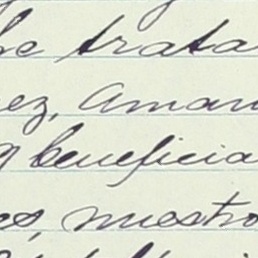 se trata
ez, Aman
g beneficia
es, nuestro